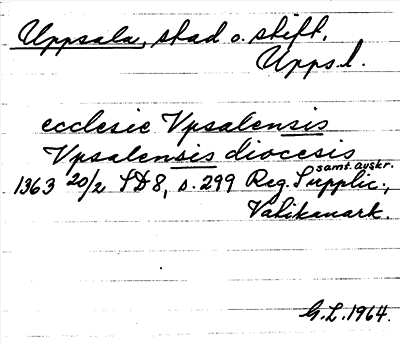 Uppsala, stad o. stift.
Uppl.
ecclesie Vpsalensis
Vpsalensis diocesis
samt. avskr.
1363 20/2 SD8, s. 299 Reg. Supplic.,
Vatikanark.
G.L. 1964.